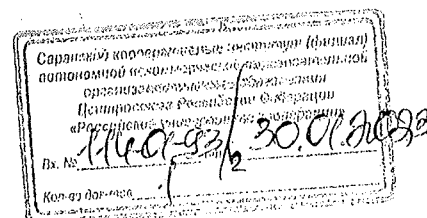 Саранский кооперативный институт (филиал)
автономной некоммерческой образовательной
организации высшего образования
Центросоюза Российской Федерации
«Российский университет кооперации»
Вх. № 114-01-93/2 30.01.2023
Кол-во док-тов 1